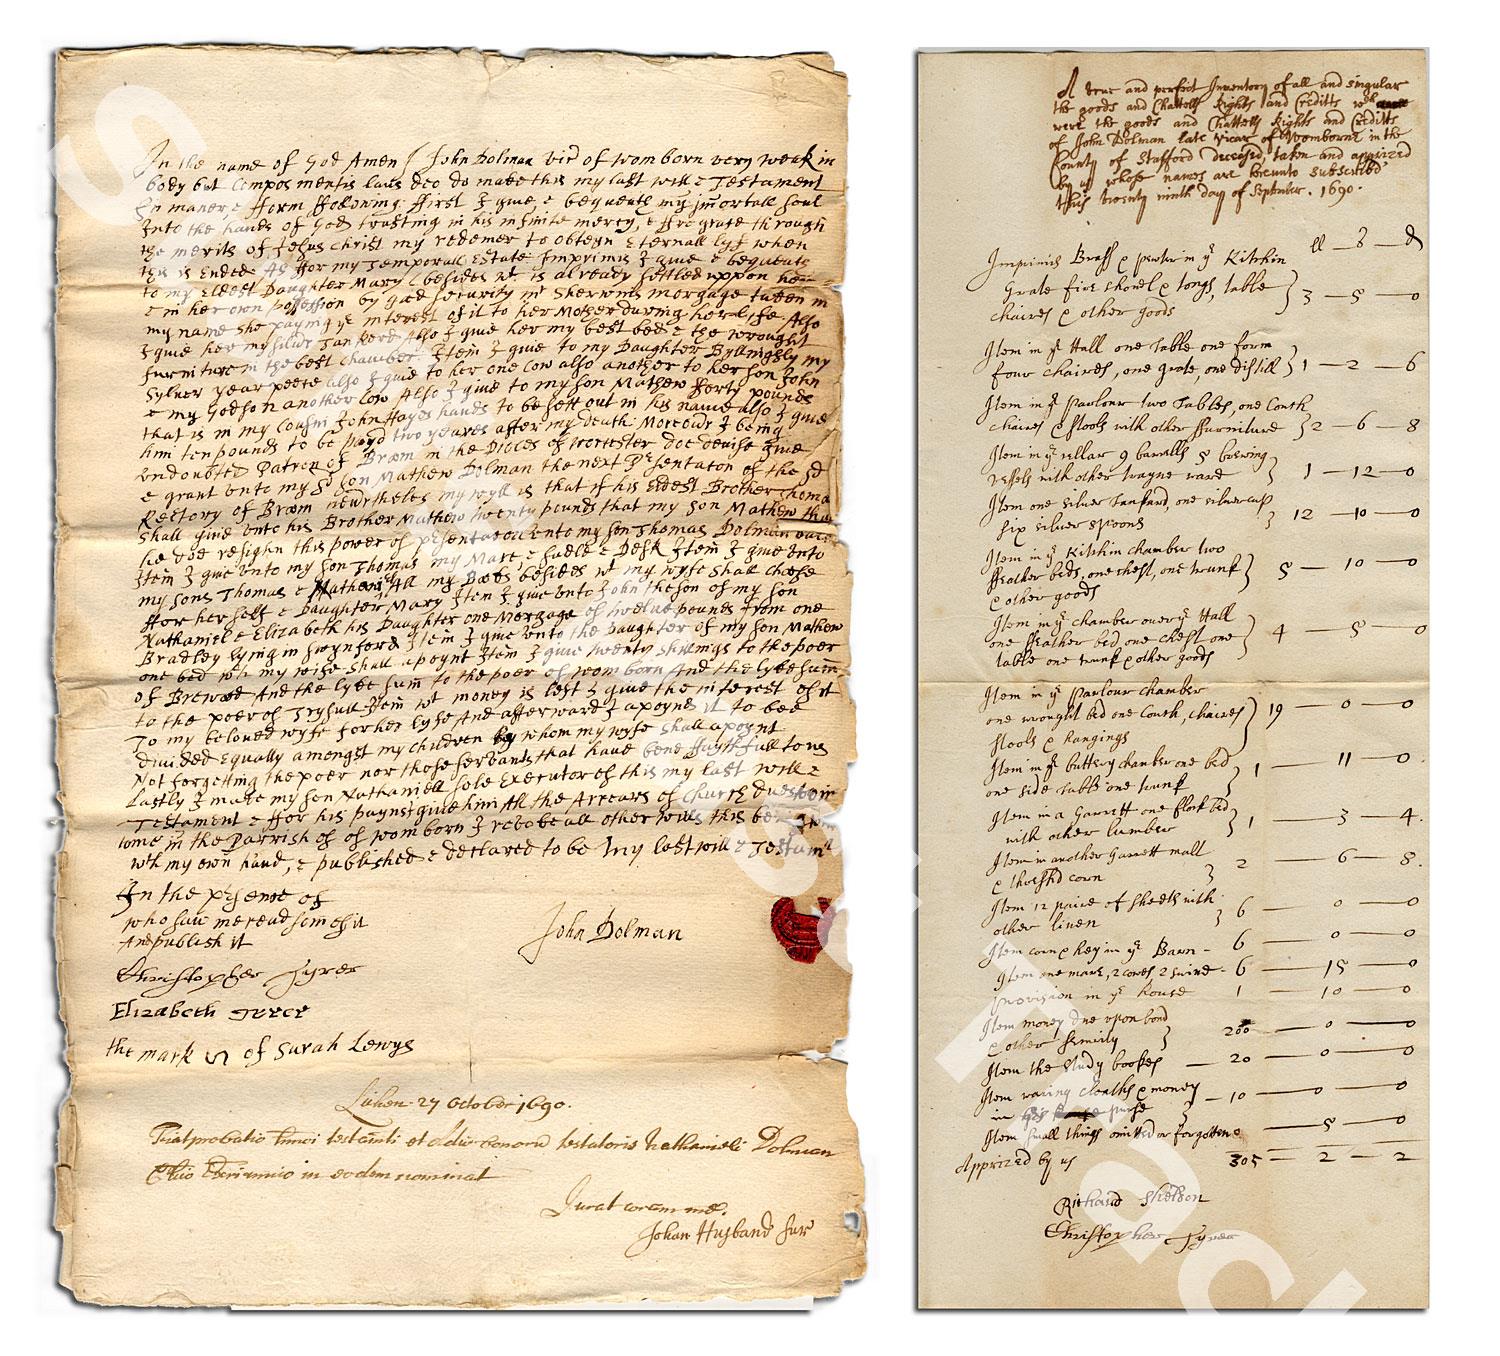 In the name of God Amen I John Dolman vic of womborn very weak in
body but Compos mentis laus deo do make this my last will & Testament
In maner, & fform ffollowing: ffirst I give, & bequeth my immortall soul
Into the hands of God trusting in his infinite mercy, & ffre grace through
the merits of Jesus Christ my redemer to obteyn Eternall lyf when
this is Ended As ffor my Temporall Estate Imprimis I give & bequeath
to my Eldest Daughter Mary (besides wt is already settled uppon her
& in her own possession by good security in Sherwins morgage taken in
my name she paying ye interest of it to her Mother during her life. Also
I give her my silver Tankerd Also I give her my best bed & the wrought
furniture in the best chamber. Item I give to my Daughter Byllinghly my
Sylver year peece also I give to her one Cow also another to her son John
& my Godson another Cow Also I give to my son Mathew fforty pounds
that is in my Cousin John Hayes hands to be sett out in his name also I give
him ten pounds to be payd two yeares after my death. Moreover I being
undoubted Patron of Broom in the Dioces of worcester doe devise give
& grant unto my sd son Mathew Dolman the next Presentation of the sd
Rectory of Broom nevertheles my wyll is that if his Eldest Brother Thoma
shall give unto his Brother Mathew twenty pounds that my son Mathew tha
he doe resighn this power of presentacon unto my son Thomas Dolman
Item I give unto my son Thomas my Mare & sadle & Desk Item I give unto
my sons Thomas & Mathew All my Books besides wt my wyfe shall chose
ffor her self & Daughter Mary Item I give unto John the son of my son
Nathaniel & Elizabeth his Daughter one Morgage of twelve pounds from one
Bradley lying in swynford Item I give unto the Daughter of my son Mathew
one bed wh my wife shall apoynt Item I give twenty shillings to the poer
of Brewood And the lyke sum to the poer of womborn And the lyke sum
to the poer of Trysull Item wt money is left I give the interest of it
To my beloved wyfe for her lyfe And afterward I apoynt it to bee
divided Equally amongst my children by whom my wyfe shall apoynt
Not forgetting the poer nor those servants that have bene ffaythfull to us
Lastly I make my son Nathaniell sole Executor of this my last will &
Testament & ffor his paynes I give him All the Arrears of Church dues
in the Parrish of of womborn I revoke all other wills this
wth my own hand, & published & declared to be my last will & Testam
In the presence of
who saw me read som of it
And publish it
John Dolman
Christopher Tyrer
Elizabeth
the mark of Sarah Lewys
27 October 1690.
testatoris Nathanieli Dolman
in eodem nominat
Jurat coram me.
Johan Husband Sur
A true and perfect Inventory of all and singular
the goods and Chattells Rights and Creditts wch
were the goods and Chattells Rights and Creditts
of John Dolman late Vicar of Womborne in the
County of Stafford deceased, taken and apprized
by us whose names are hereunto subscribed
this twenty ninth day of September. 1690.
ll — s — d
Imprimis Brass & pewter in ye Kitchin
Grate fire shovel & tongs, table } 3 — 5 — 0
chaires & other goods
Item in ye Hall one Table one form
four chaires, one grate, one } 1 — 2 — 6
Item in ye Parlour two Tables, one Couch
chaires & stools with other ffurniture } 2 — 6 — 8
Item in ye cellar 9 barrells 5 brewing
vessels with other ward } 1 — 12 — 0
Item one silver Tankard, one silver cup
six silver spoons } 12 — 10 — 0
Item in ye Kitchin chamber two
ffeather beds, one chest, one trunk } 5 — 10 — 0
& other goods
Item in ye chamber over ye Hall
one ffeather bed one chest one } 4 — 5 — 0
table one trunk & other goods
Item in ye parlour chamber
one wrought bed one Couch, chaires } 19 — 0 — 0
stools & hangings
Item in ye buttery chamber one bed
one side table one trunk } 1 — 11 — 0
Item in a Garrett one flock bed
with other lumber } 1 — 3 — 4
Item in another Garrett mall
& threshd corn } 2 — 6 — 8
Item 12 paire of sheets with
other linen } 6 — 0 — 0
Item corn & hey in ye Barn — 6 — 0 — 0
Item one mare, 2 cowes, 2 swine — 6 — 15 — 0
provision in ye house 1 — 10 — 0
Item money due upon bond
& other security } 200 — 0 — 0
Item the Study bookes — 20 — 0 — 0
Item waring cloaths & money
in his purse } — 10 — 0 — 0
Item small things omitted or forgotten — 5 — 0
Apprized by us 305 — 2 — 2
Richard Shelton
Christopher Tyrer